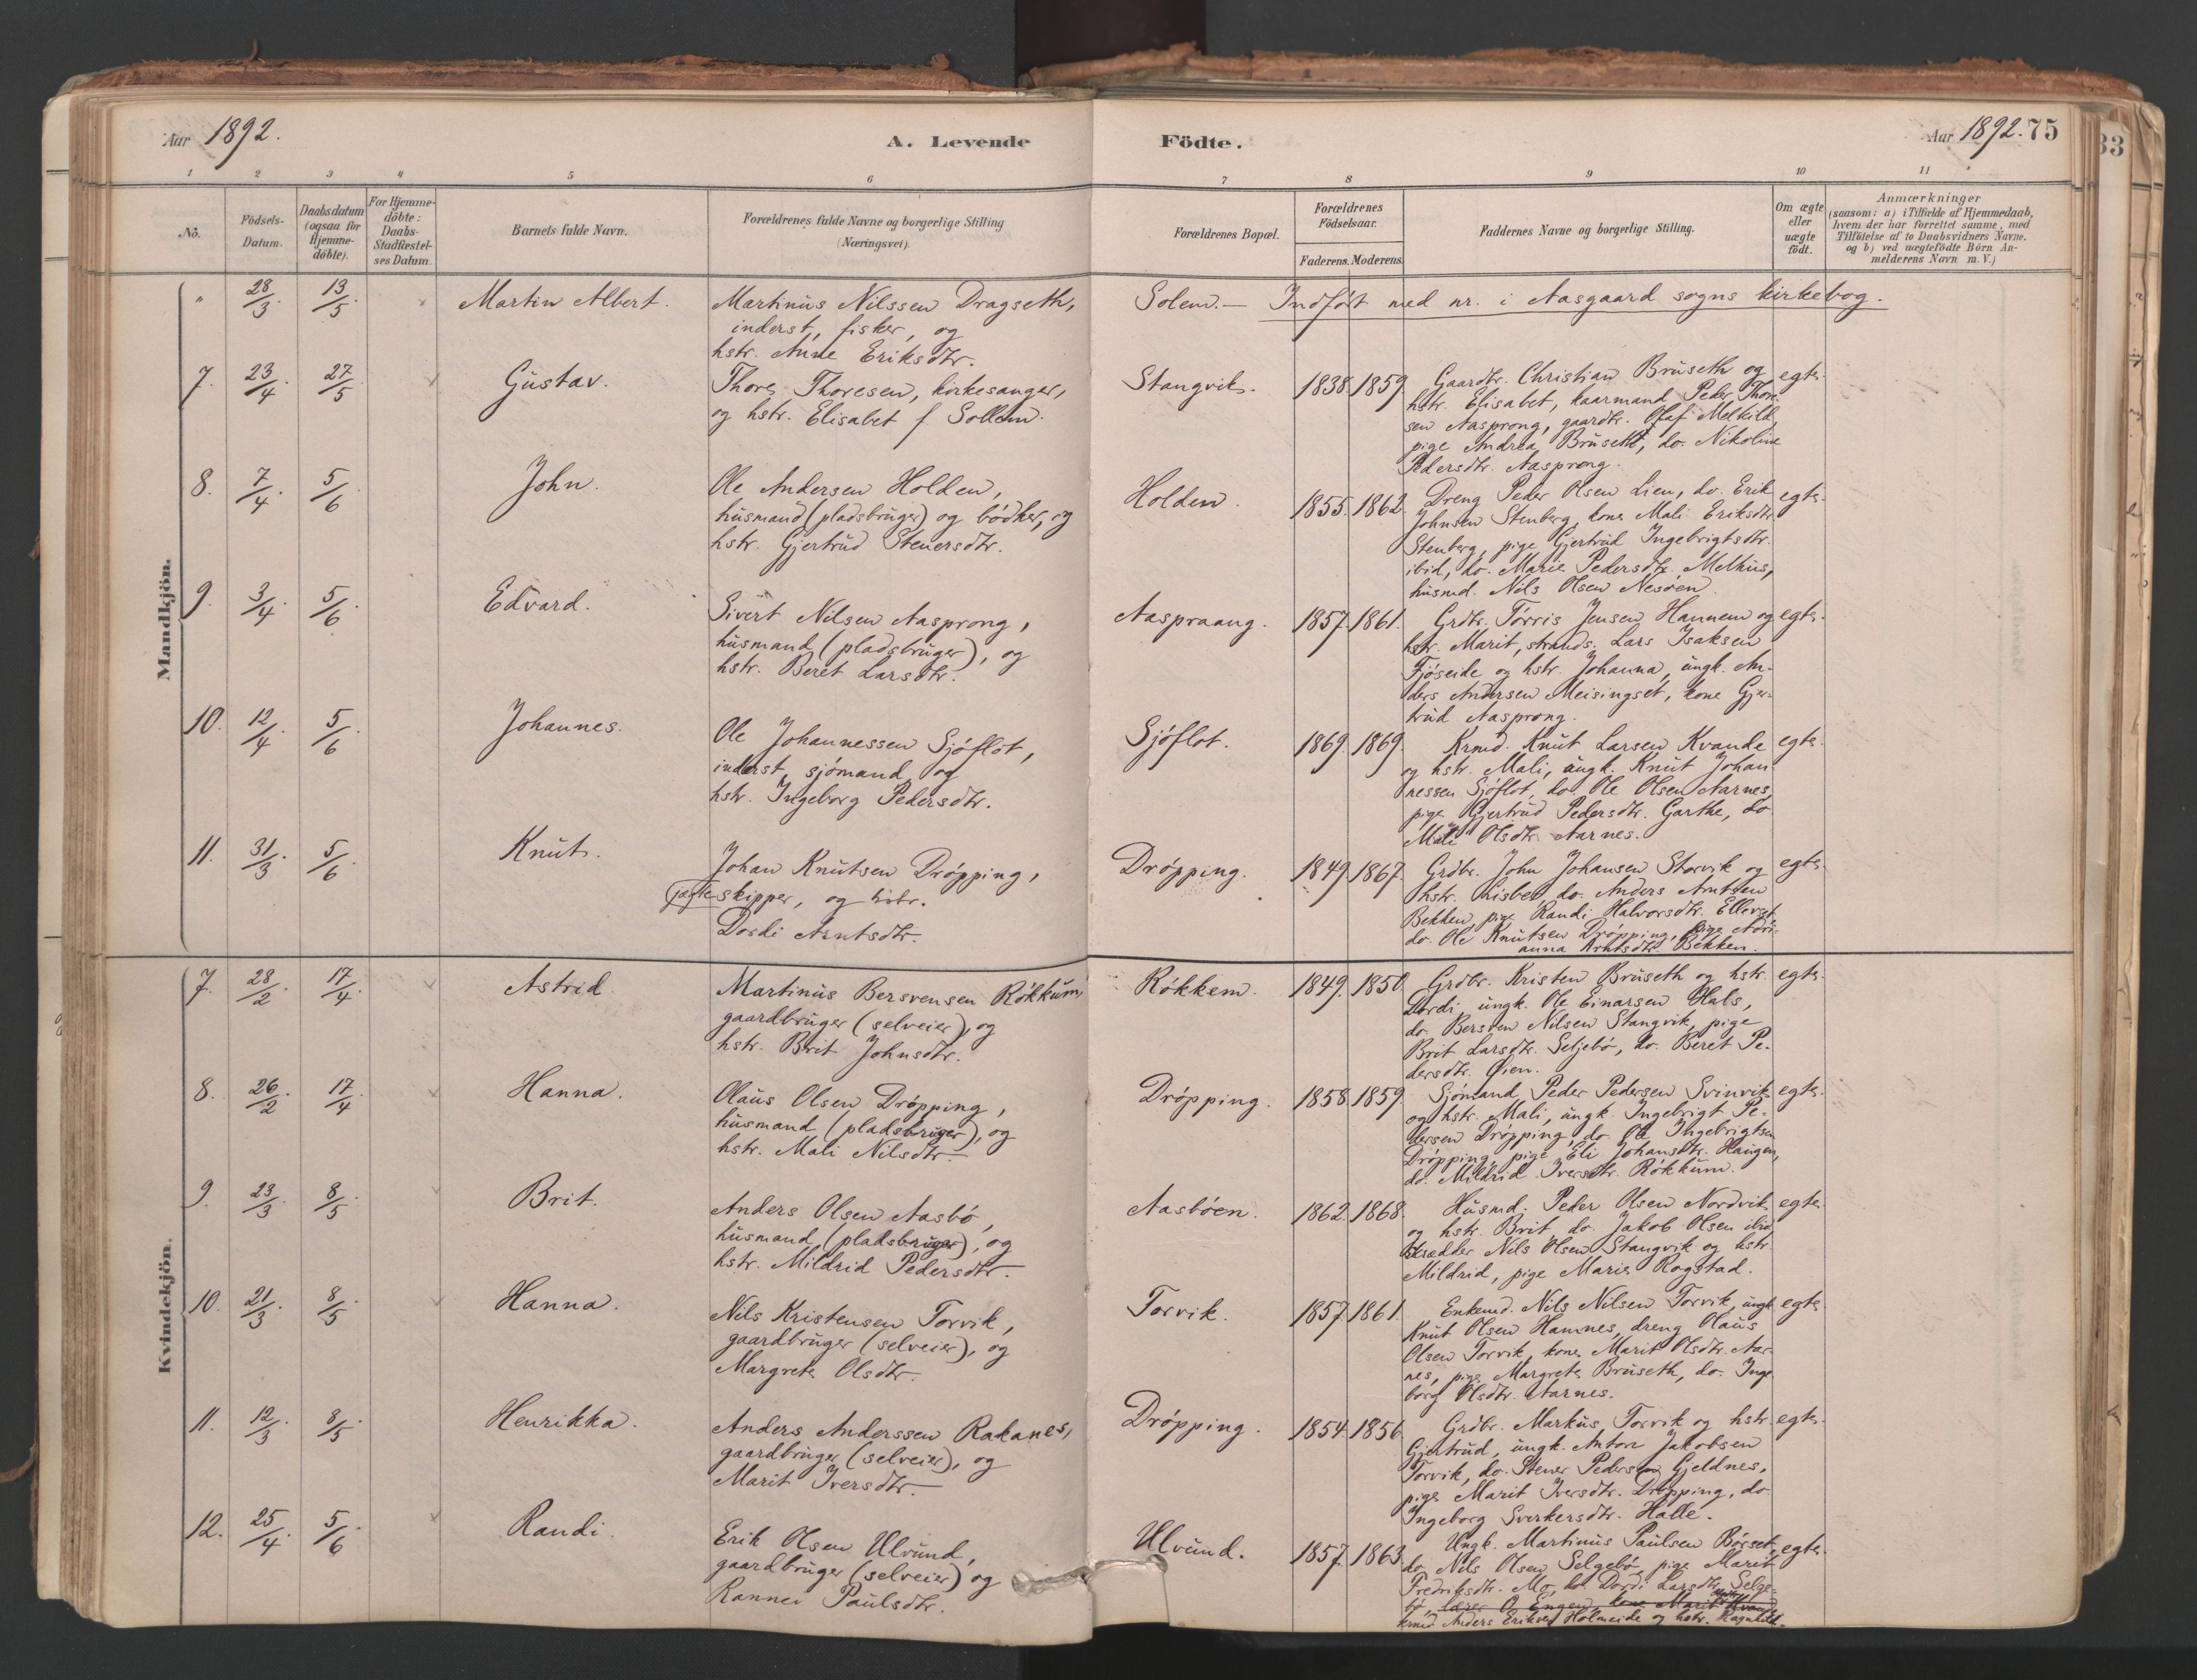 Aar 1892.
A. Levende
Födte.
Aar 1892. 75
33
1 2 3 4 5 6 7 8 9 10 11
No.
Födsels-
Datum.
Daabsdatum
(ogsaa for
Hjemme-
döbte).
For Hjemme-
döbte:
Daabs-
Stadfæstel-
ses Datum.
Barnets fulde Navn.
Forældrenes fulde Navne og borgerlige Stilling
(Næringsvei).
Forældrenes Bopæl.
Forældrenes
Födselsaar.
Faderens. Moderens.
Faddernes Navne og borgerlige Stilling.
Om ægte
eller
uægte
födt.
Anmærkninger
(saasom: a) i Tilfælde af Hjemmedaab,
hvem der har forrettet samme, med
Tilföielse af to Daabsvidners Navne.
og b) ved uægtefödte Börn An-
melderens Navn m. V.)
Mandkjön.
" 28/3. 13/5. Martin Albert.
Martinus Nilssen Dragseth,
inderst, fisker, og
hstr. Anne Eriksdtr.
Solem. — Indført med nr. i Aasgaard sogns kirkebog.
7. 23/4. 27/5 Gustav.
Thore Thoresen, kirkesanger,
og hstr. Elisabet f. Sollem.
Stangvik. 1838. 1859.
Gaardbr. Christian Bruseth og
hstr. Elisabet, kaarmand Peder Thore-
sen Aasprong, gaardbr. Olaf Melkild,
pige Andrea Bruseth, do. Nikoline
Pedersdtr. Aasprong.
egte.
8. 7/4. 5/6 John.
Ole Andersen Holden,
husmand (pladsbruger) og bødker, og
hstr. Gjertrud Stenersdtr.
Holden. 1855. 1862.
Dreng Peder Olsen Lien, do. Erik
Johnsen Stenberg, kone Mali Eriksdtr.
Stenberg, pige Gjertrud Ingebrigtsdtr.
ibid, do. Marie Pedersdtr. Melhus,
husmd. Nils Olsen Nesøen.
egte.
9. 3/4. 5/6 Edvard.
Sivert Nilsen Aasprong,
husmand (pladsbruger), og
hstr. Beret Larsdtr.
Aaspraang. 1857. 1861.
Grdbr. Tørris Jensen Hannem og
hstr. Marit, strands. Lars Isaksen
Fjøseide og hstr. Johanna, ungk. An-
ders Andersen Meisingset, kone Gjer-
trud Aasprong.
egte.
10. 12/4. 5/6 Johannes.
Ole Johannessen Sjøflot,
inderst, sjømand, og
hstr. Ingeborg Pedersdtr.
Sjøflot. 1869. 1869.
Krmd. Knut Larsen Kvande
og hstr. Mali, ungk. Knut Johan-
nessen Sjøflot, do. Ole Olsen Aarnes,
pige Gjertrud Pedersdtr. Garthe, do
Mali Olsdtr. Aarnes.
egte.
11. 31/3. 5/6 Knut.
Johan Knutsen Drøpping,
jagteskipper, og hstr.
Dordi Arntsdtr.
Drøpping. 1849. 1867.
Grdbr. John Johansen Storvik og
hstr. Lisbet, do. Anders Arntsen
Bekken, pige Randi Halvorsdtr. Ellevset,
do. Ole Knutsen Drøpping, pige Adri-
anna Arntsdtr. Bekken.
egte.
Kvindekjön.
7. 28/2. 17/4. Astrid
Martinus Bersvensen Røkkum,
gaardbruger (selveier), og
hstr. Brit Johnsdtr.
Røkkem. 1849. 1850.
Grdbr. Kristen Bruseth og hstr.
Dordi, ungk. Ole Einarsen Hals,
do. Bersven Nilsen Stangvik, pige
Brit Larsdtr. Seljebø, do. Beret Pe-
dersdtr. Øien.
egte.
8. 26/2. 17/4 Hanna.
Olaus Olsen Drøpping,
husmand (pladsbruger), og
hstr. Mali Nilsdtr.
Drøpping. 1858. 1859.
Sjømand Peder Pedersen Svinvik
og hstr. Mali, ungk. Ingebrigt Pe-
dersen Drøpping, do. Ole Ingebrigtsen
Drøpping, pige Eli Johansdtr. Haugen,
do. Mildrid Iversdtr. Røkkum.
egte.
9. 23/3. 8/5. Brit.
Anders Olsen Aasbø,
husmand (pladsbruger), og
hstr. Mildrid Pedersdtr.
Aasbøen. 1862. 1868.
Husmd. Peder Olsen Nordvik
og hstr. Brit, do. Jakob Olsen ibid,
skrædder Nils Olsen Stangvik og hstr.
Mildrid, pige Marie Rogstad.
egte.
10. 21/3. 8/5. Hanna.
Nils Kristensen Torvik,
gaardbruger (selveier), og
Margrete Olsdtr.
Torvik. 1857. 1861.
Enkemd. Nils Nilsen Torvik, ungk.
Knut Olsen Hamnes, dreng Olaus
Olsen Torvik, kone Marit Olsdtr. Aar-
nes, pige Margrete Bruseth, do. Inge-
borg Olsdtr. Aarnes.
egte.
11. 12/3. 8/5. Henrikka.
Anders Anderssen Rakanes,
gaardbruger (selveier), og
Marit Iversdtr.
Drøpping. 1854. 1856.
Grdbr. Markus Torvik og hstr.
Gjertrud, ungk. Anton Jakobsen
Torvik, do. Stener Pedersen Gjeldnes,
pige Marit Iversdtr. Drøpping, do.
Ingeborg Sverkersdtr. Halle.
egte.
12. 25/4. 5/6 Randi.
Erik Olsen Ulvund,
gaardbruger (selveier) og
Rannei Paulsdtr.
Ulvund. 1857. 1863.
Ungk. Martinus Paulsen Børset,
do. Nils Olsen Selgebø, pige Marit
Fredriksdtr. Mo, do. Dordi Larsdtr. Selge-
bø, lærer O. Engen, kone Marit
krmd. Anders Eriksen Holmeide og hstr. Ragnhild.
egte.